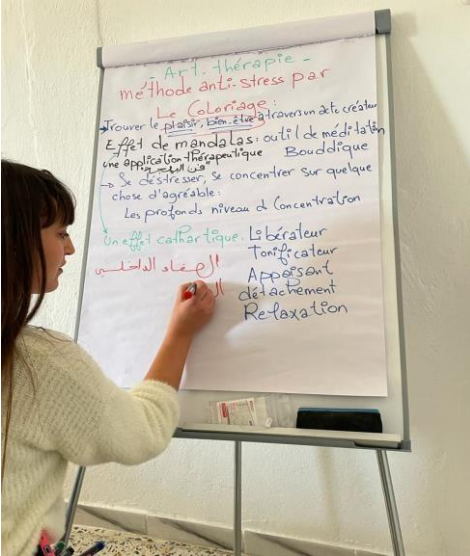 - Art-thérapie -
méthode anti-stress par
Le Coloriage :
→ Trouver le plaisir, bien être à travers un acte créateur
Effet de mandalas : outil de méditation
une application thérapeutique Bouddique
→ Se déstresser, se concentrer sur quelque
chose d'agréable :
Les profonds niveau d Concentration
Un effet cathartique. Libérateur
Tonificateur
الصفاء الداخلي
Appaisant
ال
détachement
Relaxation